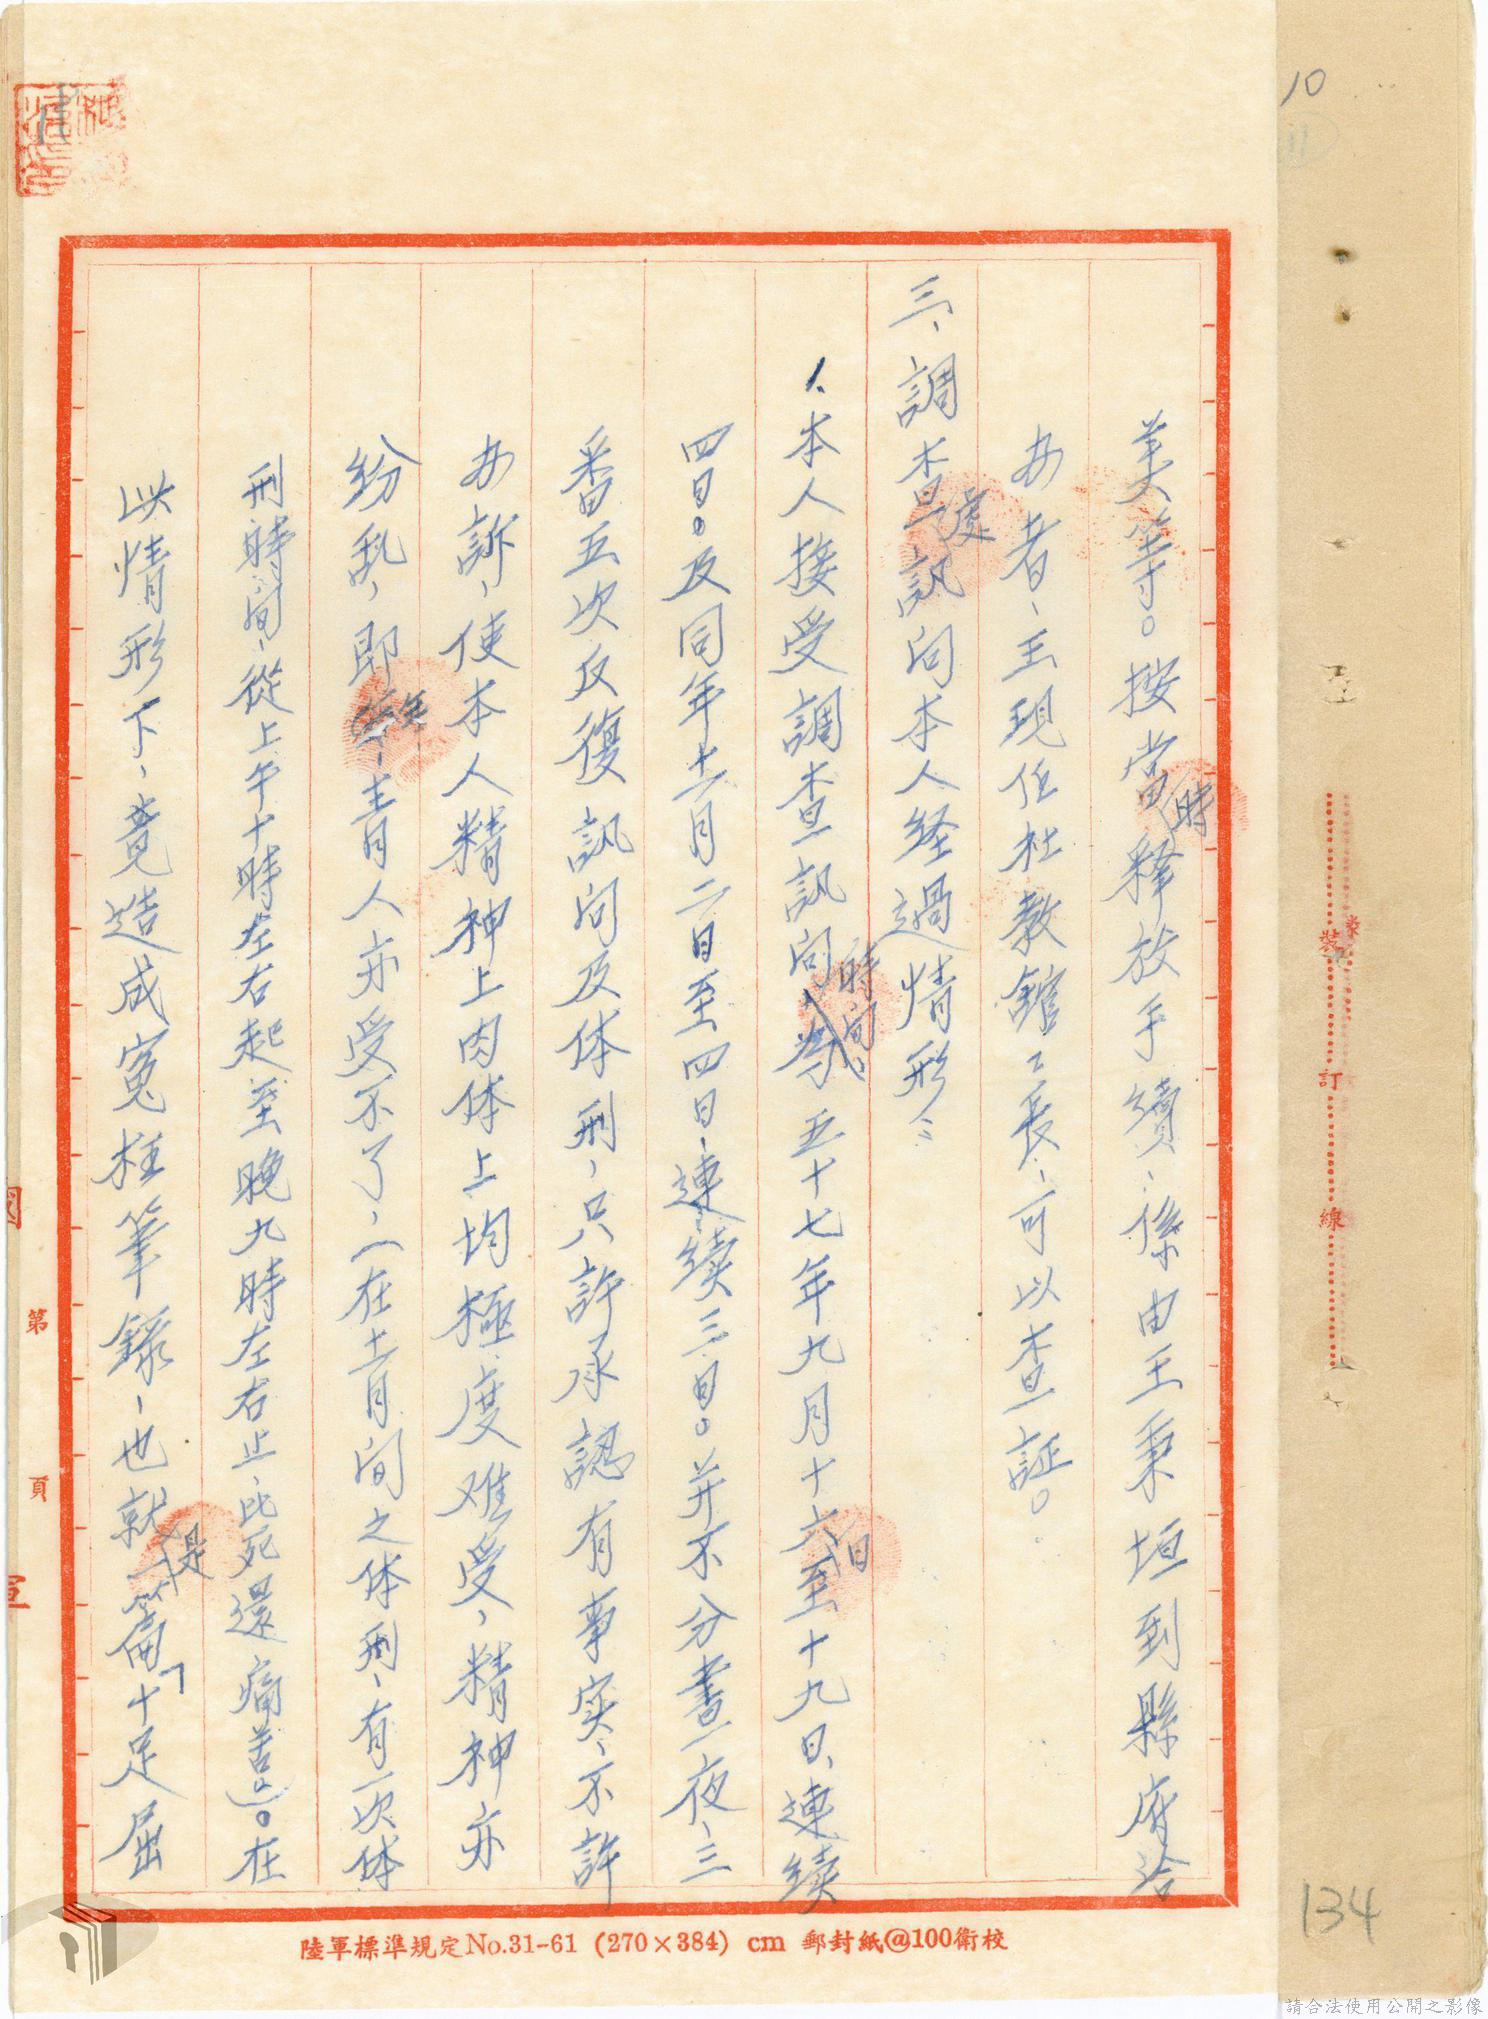 10
11
美等。按當時釋放手續、係由王秉垣到縣府洽
办者、王現任社教舘々長、可以查証。
三、調查處訊问本人経過情形：
1.本人接受調查訊问時间、五十七年九月十六日至十九日、連續
四日。及同年十一月二日至四日、連續三日。并不分晝夜、三
番五次反復訊问及体刑，只許承認有事实、不許
办訴，使本人精神上肉体上均極度难受，精神亦
紛乱，即年青人亦受不了，（在十一月间之体刑、有一次体
刑時间、從上午十時左右起至晚九時左右止、比死還痛苦）。在
此情形下、竟造成寃枉筆錄、也就是一篇「十足屈
裝
訂
線
第
頁
陸軍標準規定No.31-61 (270×384) cm 郵封紙@100衛校
134
請合法使用公開之影像